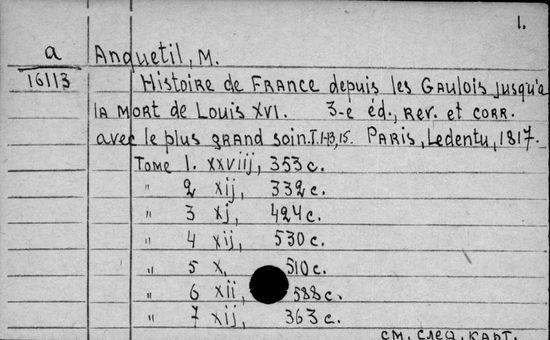 1.
a Anquetil, M.
16113 Histoire de France depuis les Gaulois jusqu'a
la mort de Louis XVI. 3-e éd., rev. et corr.
avec le plus grand soin. T. 1-13, 15. Paris, Ledentu, 1817.
Tome 1. XXViij, 353 c.
" 2 Xij, 332 c.
" 3 Xj, 424 c.
" 4 Xij, 530 c.
" 5 X, 510 c.
" 6 Xii, 588 c.
" 7 Xij, 363 c.
см. след. карт.